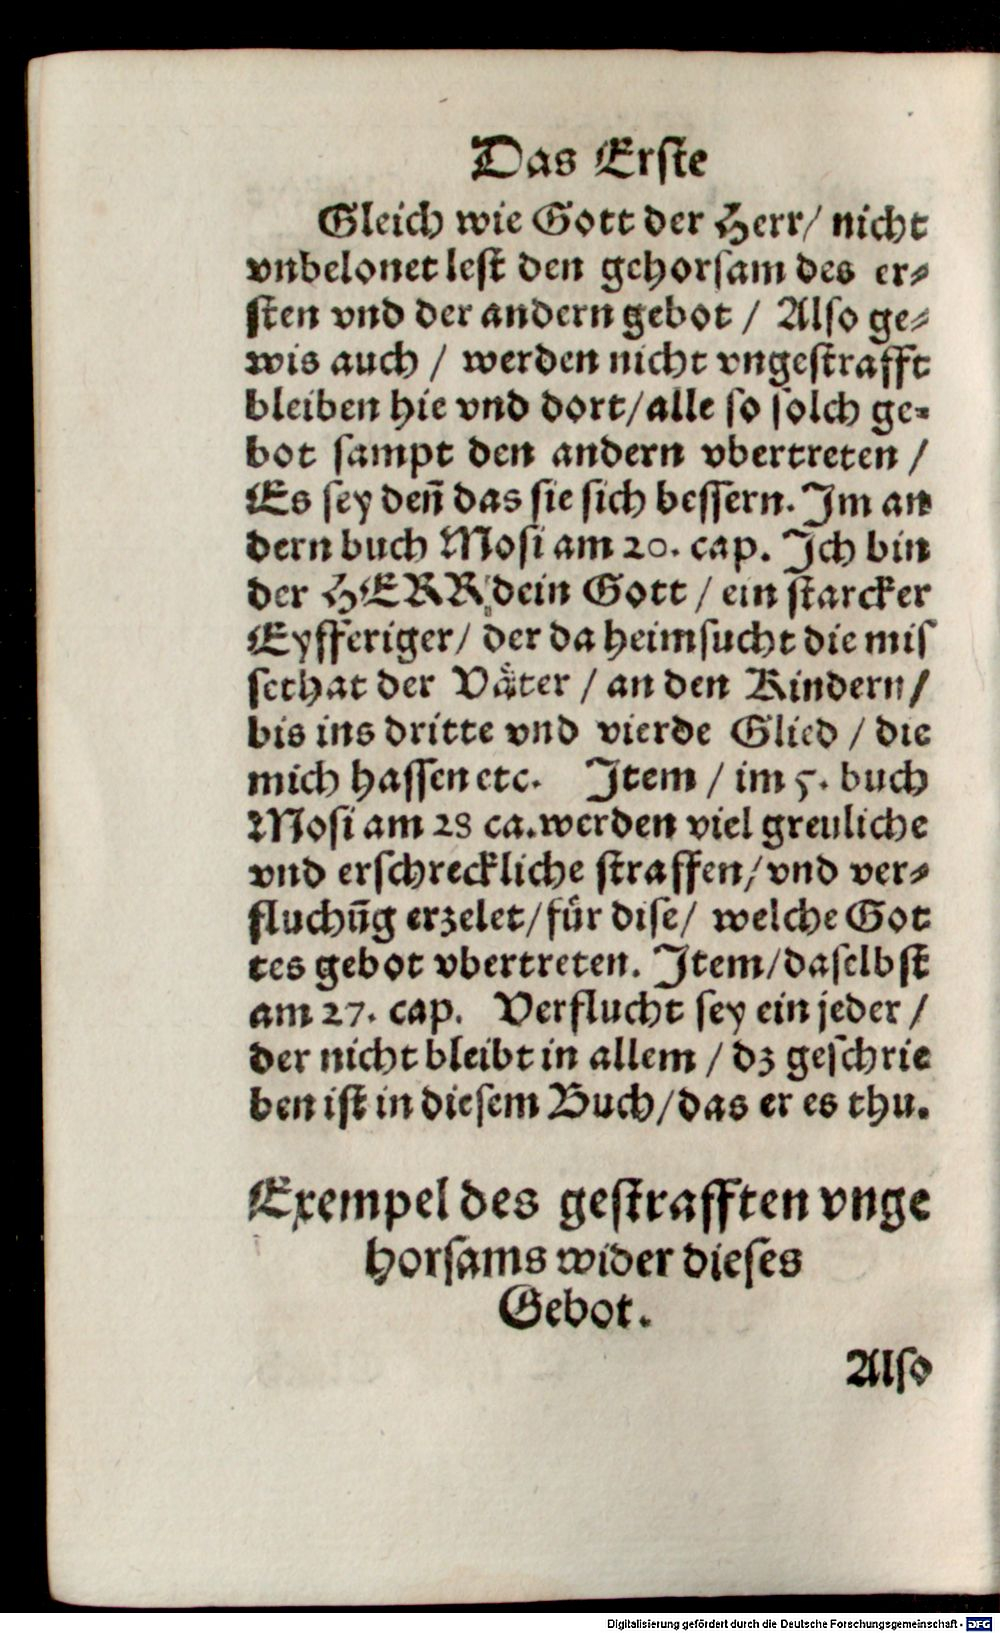 Das Erſte
Gleich wie Gott der Herr/ nicht
vnbelonet leſt den gehorſam des er⸗
ſten vnd der andern gebot / Alſo ge⸗
wis auch / werden nicht vngeſtrafft
bleiben hie vnd dort/alle ſo ſolch ge⸗
bot ſampt den andern vbertreten /
Es ſey deñ das ſie ſich beſſern. Im an
dern buch Moſi am 20. cap. Ich bin
der HERR dein Gott / ein ſtarcker
Eyfferiger/ der da heimſucht die miſ
ſethat der Vaͤter / an den Kindern/
bis ins dritte vnd vierde Glied / die
mich haſſen etc. Item / im 5. buch
Moſi am 28 ca.werden viel greuliche
vnd erſchreckliche ſtraffen/vnd ver⸗
fluchũg erzelet/fuͤr diſe/ welche Got
tes gebot vbertreten. Item/daſelbſt
am 27. cap. Verflucht ſey ein jeder /
der nicht bleibt in allem / dz geſchrie
ben iſt in dieſem Buch/das er es thu.
Exempel des geſtrafften vnge
horſams wider dieſes
Gebot.
Alſo
Digitalisierung gefördert durch die Deutsche Forschungsgemeinschaft - DFG